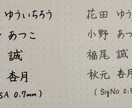 ゆういちろう 花田 ゆう
あつこ 小野 あつ
誠 福尾 誠
香月 秋元 香
SA 0.7mm) (SigNo 0.